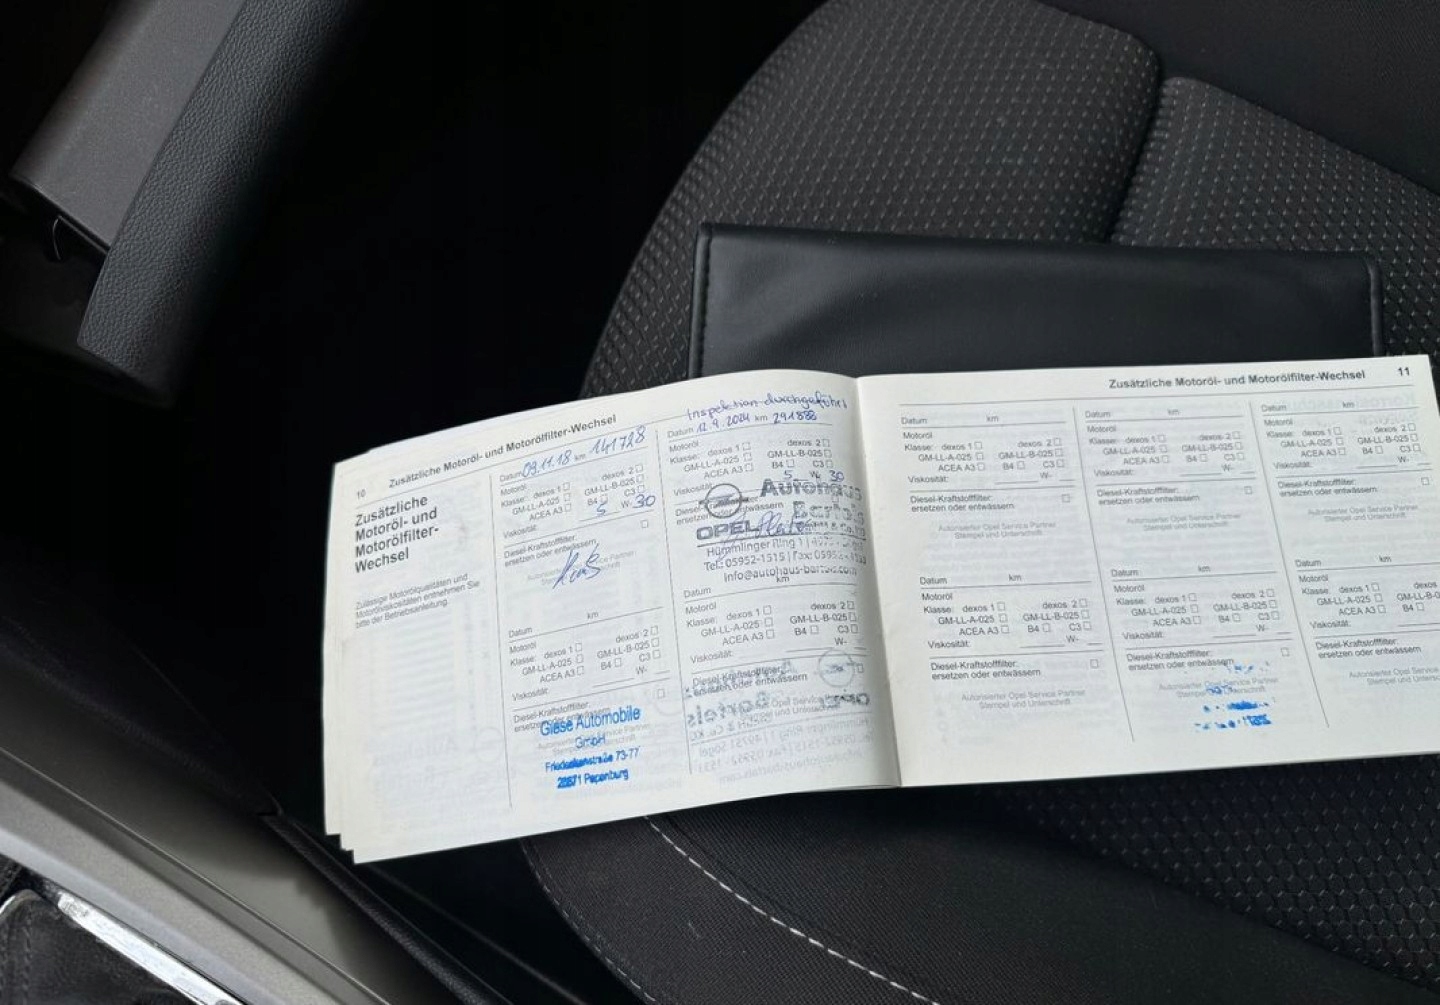 10 Zusätzliche Motoröl- und Motorölfilter-Wechsel
Zusätzliche
Motoröl- und
Motorölfilter-
Wechsel
Zulässige Motorölqualitäten und
Motorölviskositäten entnehmen Sie
bitte der Betriebsanleitung.
Datum 09.11.18 km 141728
Motoröl
Klasse: dexos 1 dexos 2
GM-LL-A-025 GM-LL-B-025
ACEA A3 B4 C3
Viskosität: 5 W- 30
Diesel-Kraftstofffilter:
ersetzen oder entwässern
Datum km
Motoröl
Klasse: dexos 1 dexos 2
GM-LL-A-025 GM-LL-B-025
ACEA A3 B4 C3
Viskosität: W-
Diesel-Kraftstofffilter:
ersetzen oder entwässern
Giese Automobile
GmbH
73-77
Papenburg
Inspektion durchgeführt
Datum 12.9.2024 km 291888
Motoröl
Klasse: dexos 1 dexos 2
GM-LL-A-025 GM-LL-B-025
ACEA A3 B4 C3
Viskosität: 5 W- 30
Diesel-Kraftstofffilter:
ersetzen oder entwässern
Autohaus
Bartels
OPEL
Hümmlinger Ring 1
Tel.: 05952-1515 | Fax: 05952-
Datum km
Motoröl
Klasse: dexos 1 dexos 2
GM-LL-A-025 GM-LL-B-025
ACEA A3 B4 C3
Viskosität: W-
Diesel-Kraftstofffilter:
ersetzen oder entwässern
Zusätzliche Motoröl- und Motorölfilter-Wechsel 11
Datum km
Motoröl
Klasse: dexos 1 dexos 2
GM-LL-A-025 GM-LL-B-025
ACEA A3 B4 C3
Viskosität: W-
Diesel-Kraftstofffilter:
ersetzen oder entwässern
Autorisierter Opel Service Partner
Stempel und Unterschrift
Datum km
Motoröl
Klasse: dexos 1 dexos 2
GM-LL-A-025 GM-LL-B-025
ACEA A3 B4 C3
Viskosität: W-
Diesel-Kraftstofffilter:
ersetzen oder entwässern
Autorisierter Opel Service Partner
Stempel und Unterschrift
Datum km
Motoröl
Klasse: dexos 1 dexos 2
GM-LL-A-025 GM-LL-B-025
ACEA A3 B4 C3
Viskosität: W-
Diesel-Kraftstofffilter:
ersetzen oder entwässern
Autorisierter Opel Service Partner
Stempel und Unterschrift
Datum km
Motoröl
Klasse: dexos 1 dexos 2
GM-LL-A-025 GM-LL-B-025
ACEA A3 B4 C3
Viskosität: W-
Diesel-Kraftstofffilter:
ersetzen oder entwässern
Autorisierter Opel Service Partner
Stempel und Unterschrift
Datum km
Motoröl
Klasse: dexos 1 dexos 2
GM-LL-A-025 GM-LL-B-025
ACEA A3 B4 C3
Viskosität: W-
Diesel-Kraftstofffilter:
ersetzen oder entwässern
Autorisierter Opel Service Partner
Stempel und Unterschrift
Datum km
Motoröl
Klasse: dexos 1 dexos 2
GM-LL-A-025
ACEA A3 B4
Viskosität:
Diesel-Kraftstofffilter:
ersetzen oder entwässern
Autorisierter Opel Service
Stempel und